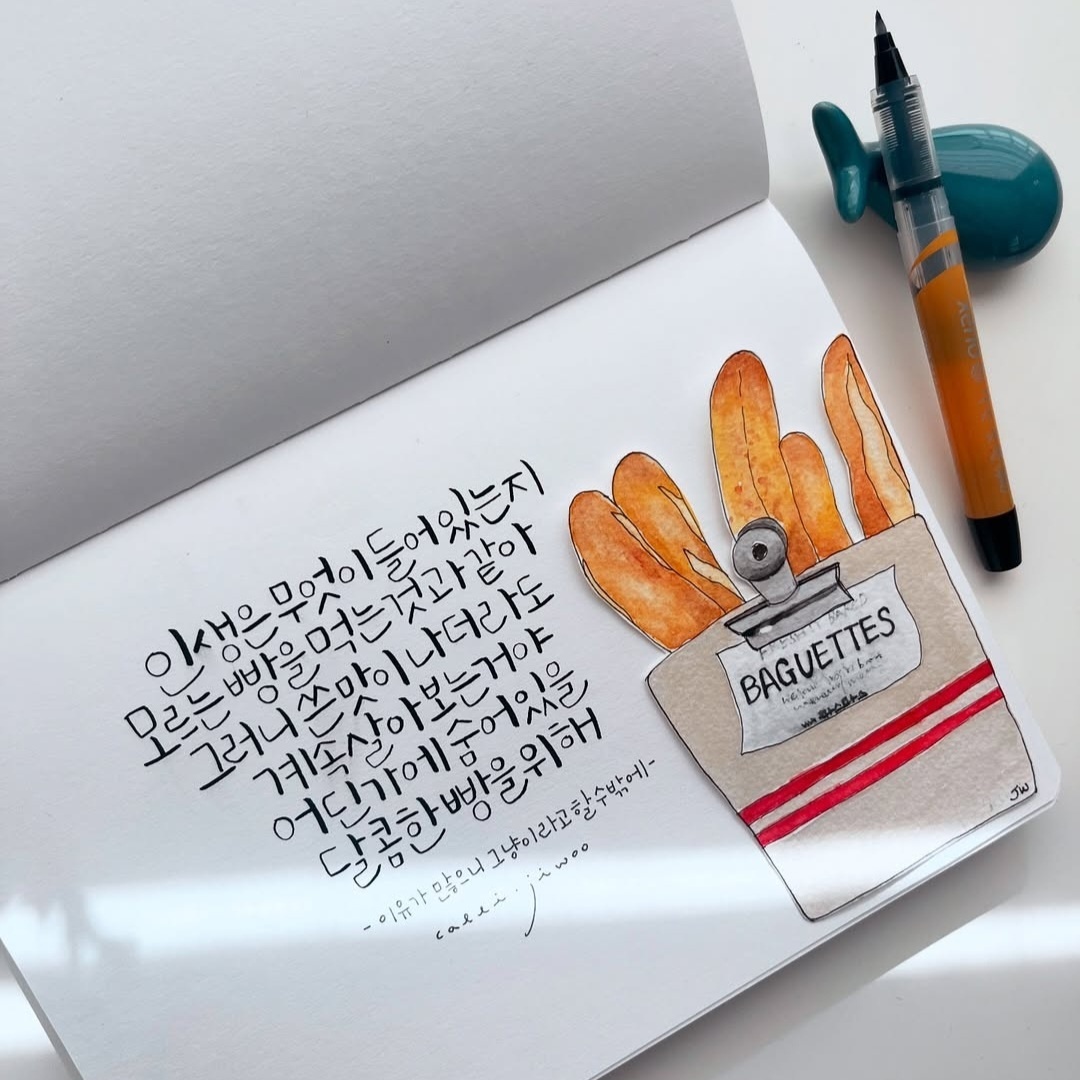 인생은 무엇이 들어있는지
모르는 빵을 먹는 것과 같아
그러니 쓴맛이 나더라도
계속 살아보는거야
어딘가에 숨어있을
달콤한 빵을 위해
-이유가 많으니 그냥이라고할수밖에-
calli.jiwoo
FRESHLY BAKED
BAGUETTES
JW